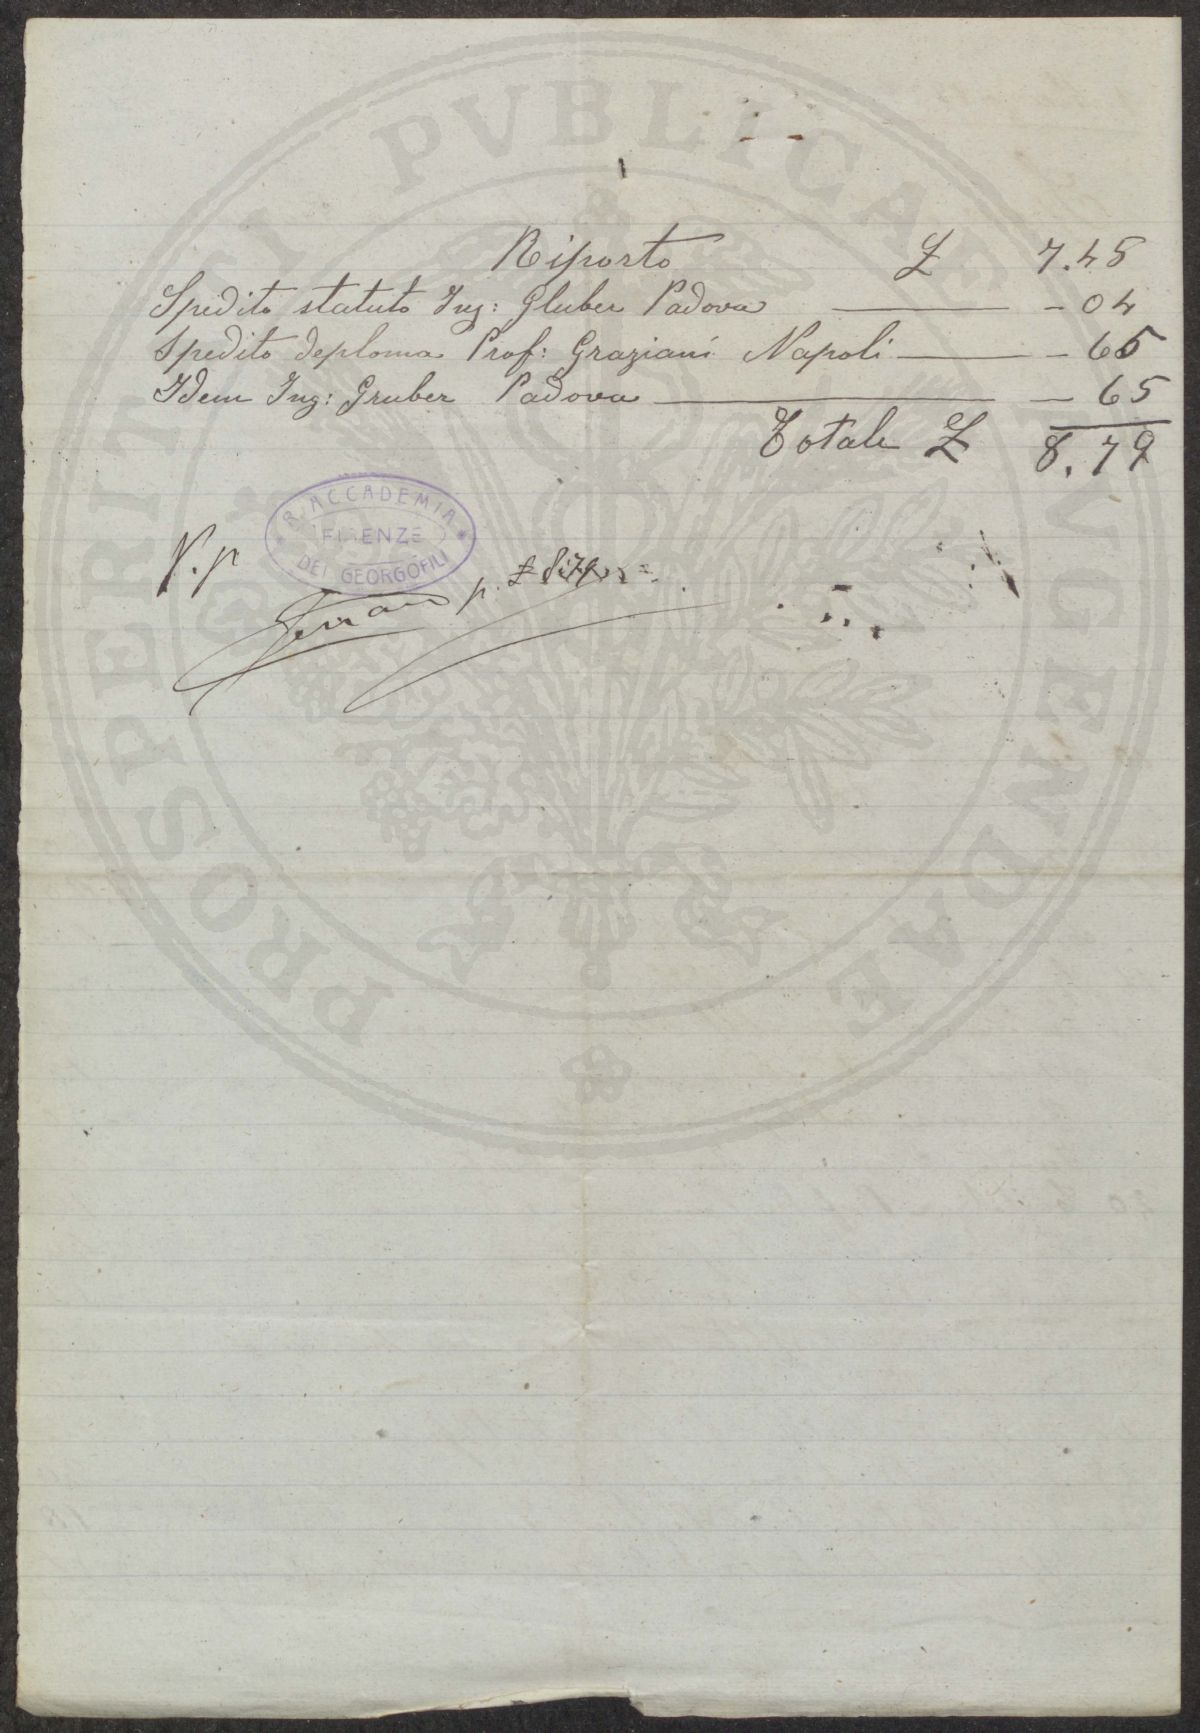 PROSPERITATI PVBLICAE AVGENDAE
Riporto £ 7.45
Spedito statuto Ing: Gluber Padova - 04
Spedito deploma Prof: Graziani Napoli - 65
Idem Ing: Gruber Padova - 65
Totale £ 8.79
R. ACCADEMIA
FIRENZE
DEI GEORGOFILI
V. p
p. £ 8:79